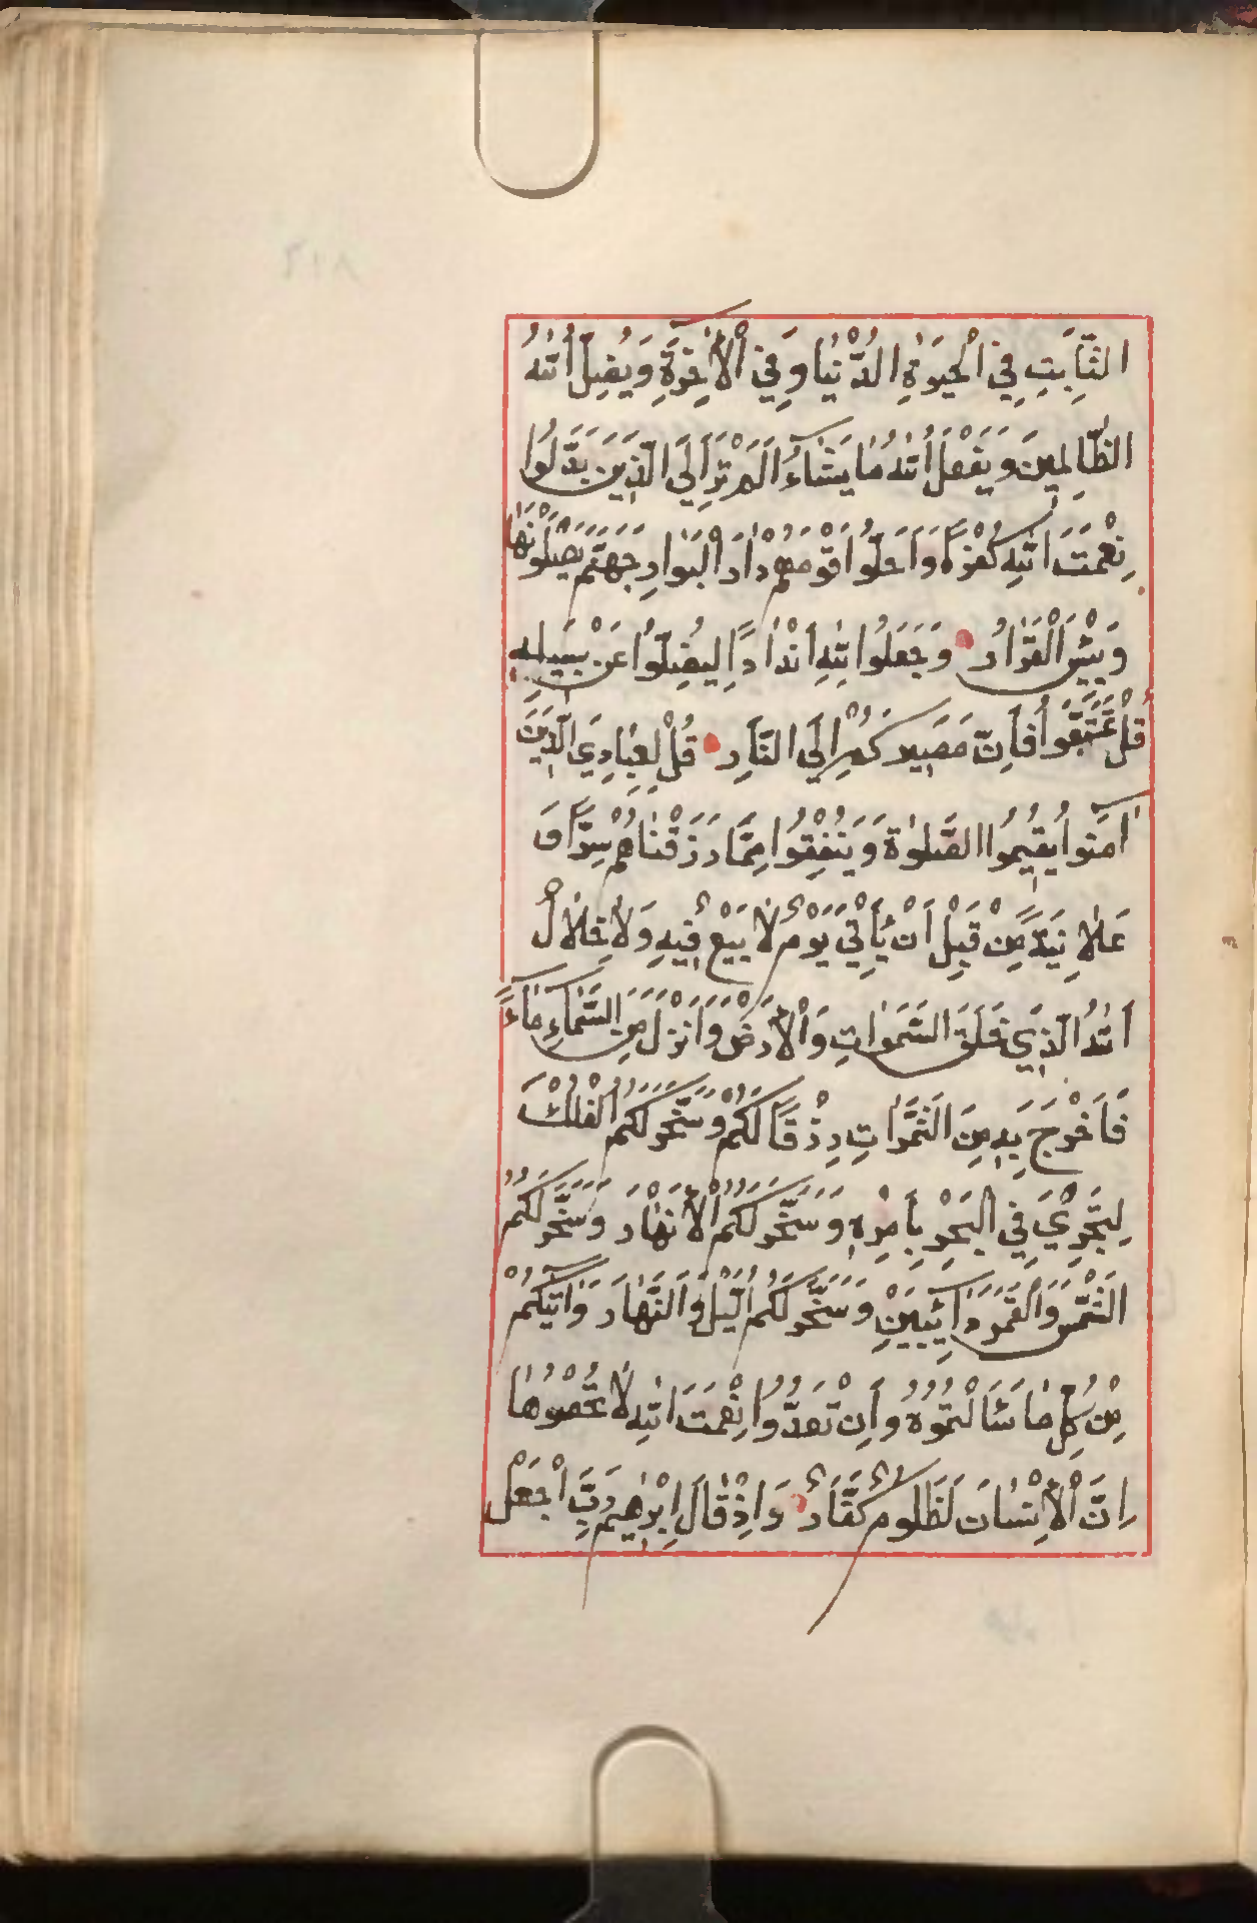 الثَّابِتِ فِي الْحَيٰوةِ الدُّنْيٰا وَفِي الْأٰخِرَةِ وَيُضِلُّ اللّٰهُ
الظّٰالِمِينَ وَيَفْعَلُ اللّٰهُ مٰا يَشٰاءُ أَلَمْ تَرَ إِلَى الَّذِينَ بَدَّلُوا
نِعْمَتَ اللّٰهِ كُفْرًا وَأَحَلُّوا قَوْمَهُمْ دٰارَ الْبَوٰارِ جَهَنَّمَ يَصْلَوْنَهٰا
وَبِئْسَ الْقَرٰارُ وَجَعَلُوا لِلّٰهِ أَنْدٰادًا لِيُضِلُّوا عَنْ سَبِيلِهِ
قُلْ تَمَتَّعُوا فَإِنَّ مَصِيرَكُمْ إِلَى النَّارِ قُلْ لِعِبٰادِيَ الَّذِينَ
اٰمَنُوا يُقِيمُوا الصَّلٰوةَ وَيُنْفِقُوا مِمَّا رَزَقْنٰاهُمْ سِرًّا وَ
عَلاٰنِيَةً مِنْ قَبْلِ أَنْ يَأْتِيَ يَوْمٌ لاٰ بَيْعٌ فِيهِ وَلاٰ خِلاٰلٌ
اَللّٰهُ الَّذِي خَلَقَ السَّمٰوٰاتِ وَالْأَرْضَ وَأَنْزَلَ مِنَ السَّمٰاءِ مٰاءً
فَأَخْرَجَ بِهِ مِنَ الثَّمَرٰاتِ رِزْقًا لَكُمْ وَسَخَّرَ لَكُمُ الْفُلْكَ
لِتَجْرِيَ فِي الْبَحْرِ بِأَمْرِهِ وَسَخَّرَ لَكُمُ الْأَنْهٰارَ وَسَخَّرَ لَكُمُ
الشَّمْسَ وَالْقَمَرَ دٰائِبَيْنِ وَسَخَّرَ لَكُمُ اللَّيْلَ وَالنَّهٰارَ وَاٰتٰيكُمْ
مِنْ كُلِّ مٰا سَأَلْتُمُوهُ وَإِنْ تَعُدُّوا نِعْمَتَ اللّٰهِ لاٰ تُحْصُوهٰا
إِنَّ الْإِنْسٰانَ لَظَلُومٌ كَفَّارٌ وَإِذْ قٰالَ إِبْرٰهِيمُ رَبِّ اجْعَلْ